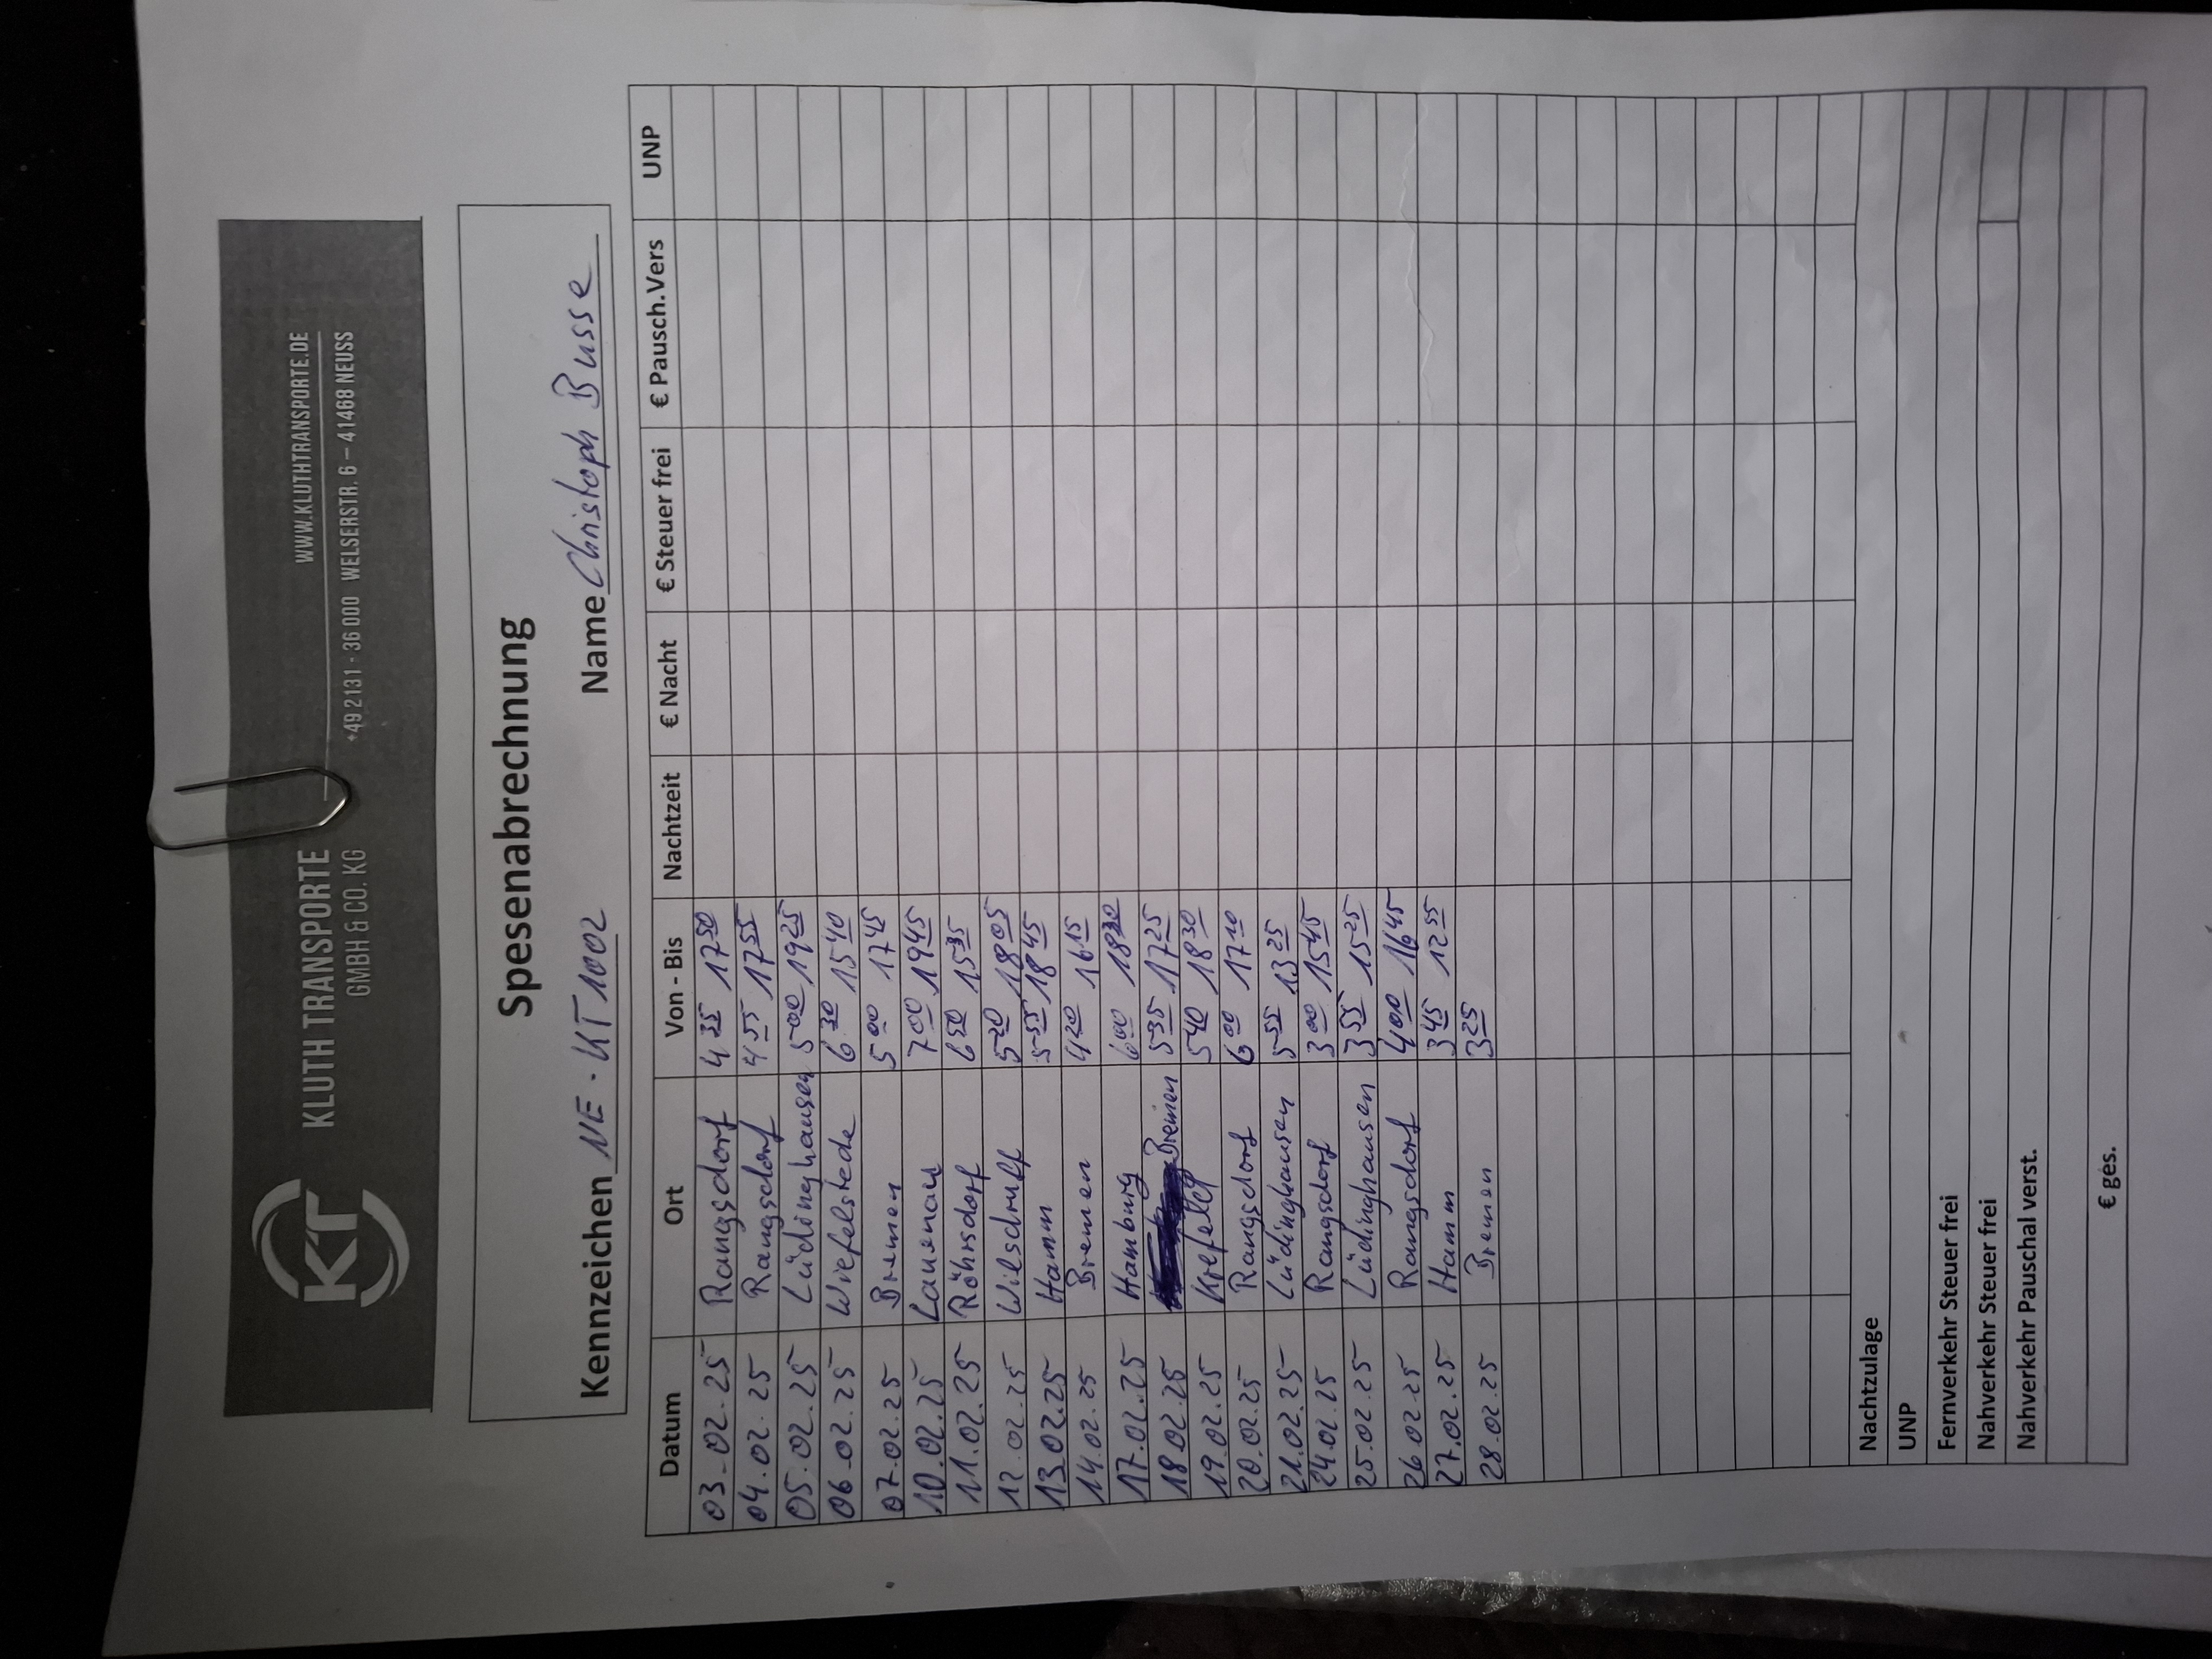 KT KLUTH TRANSPORTE
GMBH & CO. KG
WWW.KLUTHTRANSPORTE.DE
+49 2131 - 36 000 WELSERSTR. 6 – 41468 NEUSS
Spesenabrechnung
Kennzeichen NE - KT 1002 Name Christoph Busse
Datum Ort Von - Bis Nachtzeit € Nacht € Steuer frei € Pausch.Vers UNP
03.02.25 Rangsdorf 4 35 17 50
04.02.25 Rangsdorf 4 55 17 55
05.02.25 Lüdinghausen 5 00 19 25
06.02.25 Wiefelstede 6 30 15 40
07.02.25 Bremen 5 00 17 45
10.02.25 Lauenau 7 00 19 45
11.02.25 Röhrsdorf 6 50 15 35
12.02.25 Wilsdruff 5 20 18 05
13.02.25 Hamm 5 55 18 45
14.02.25 Bremen 4 20 16 15
17.02.25 Hamburg 6 00 18 30
18.02.25 Bremen 5 35 17 25
19.02.25 Krefeld 5 40 18 30
20.02.25 Rangsdorf 6 00 17 10
21.02.25 Lüdinghausen 5 55 13 25
24.02.25 Rangsdorf 3 00 15 45
25.02.25 Lüdinghausen 3 55 15 25
26.02.25 Rangsdorf 4 00 16 45
27.02.25 Hamm 3 45 12 55
28.02.25 Bremen 3 25
Nachtzulage
UNP
Fernverkehr Steuer frei
Nahverkehr Steuer frei
Nahverkehr Pauschal verst.
€ ges.